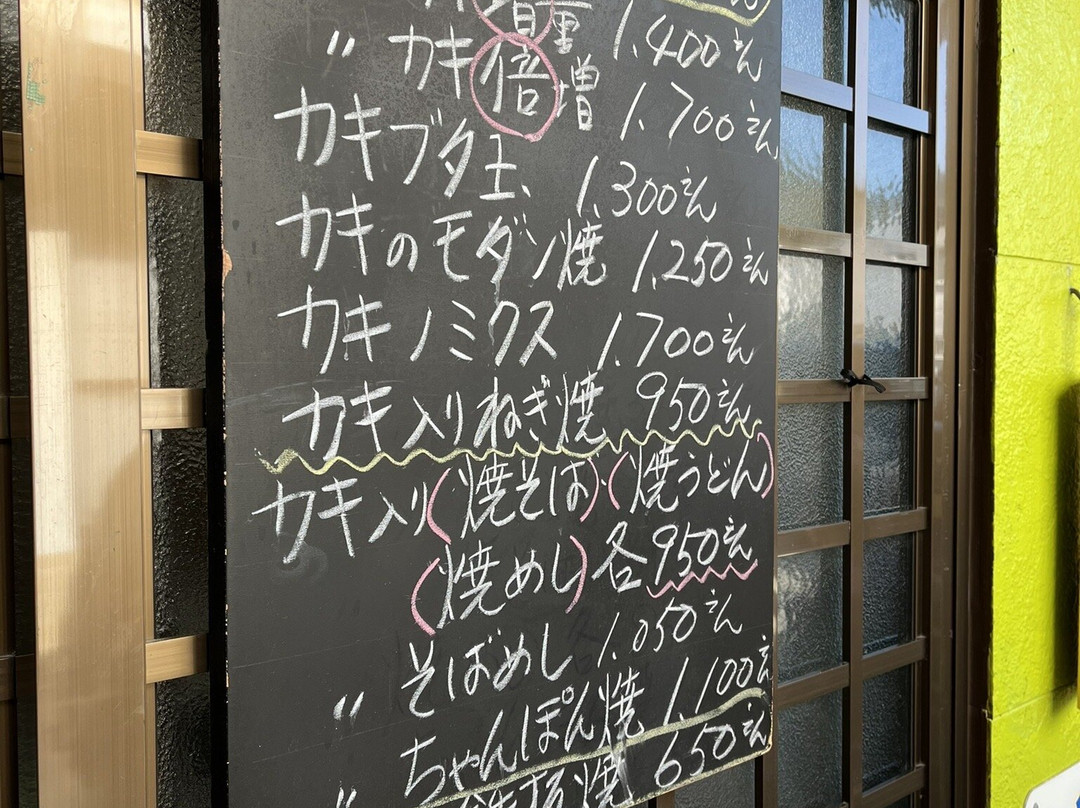 カキ増量 1.400えん
〃 カキ倍増 1.700えん
カキブタ玉、 1.300えん
カキのモダン焼 1.250えん
カキノミクス 1.700えん
カキ入りねぎ焼 950えん
カキ入り(焼そば)・(焼うどん)
(焼めし)各950えん
〃 そばめし 1.050えん
〃 ちゃんぽん焼 1.100えん
〃 鉄板焼 650えん